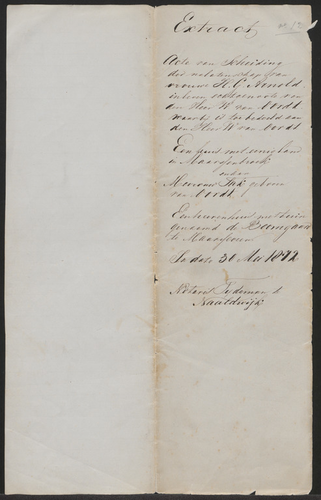 Extract
Acte van Scheiding
der nalatenschap van
vrouwe H. G. Arnold
in leven echtgenoote van
den Heer W van Oordt
waarbij is toebedeeld aan
den Heer W van Oordt
Een huis met eenig land
in Maarssenbroek
en aan
Mevrouw geboren
van Oordt
Een heerenhuis met tuin
genaamd de Boomgaard
te Maarssen
In dato 30 Mei 1872
Notaris te
Naaldwijk